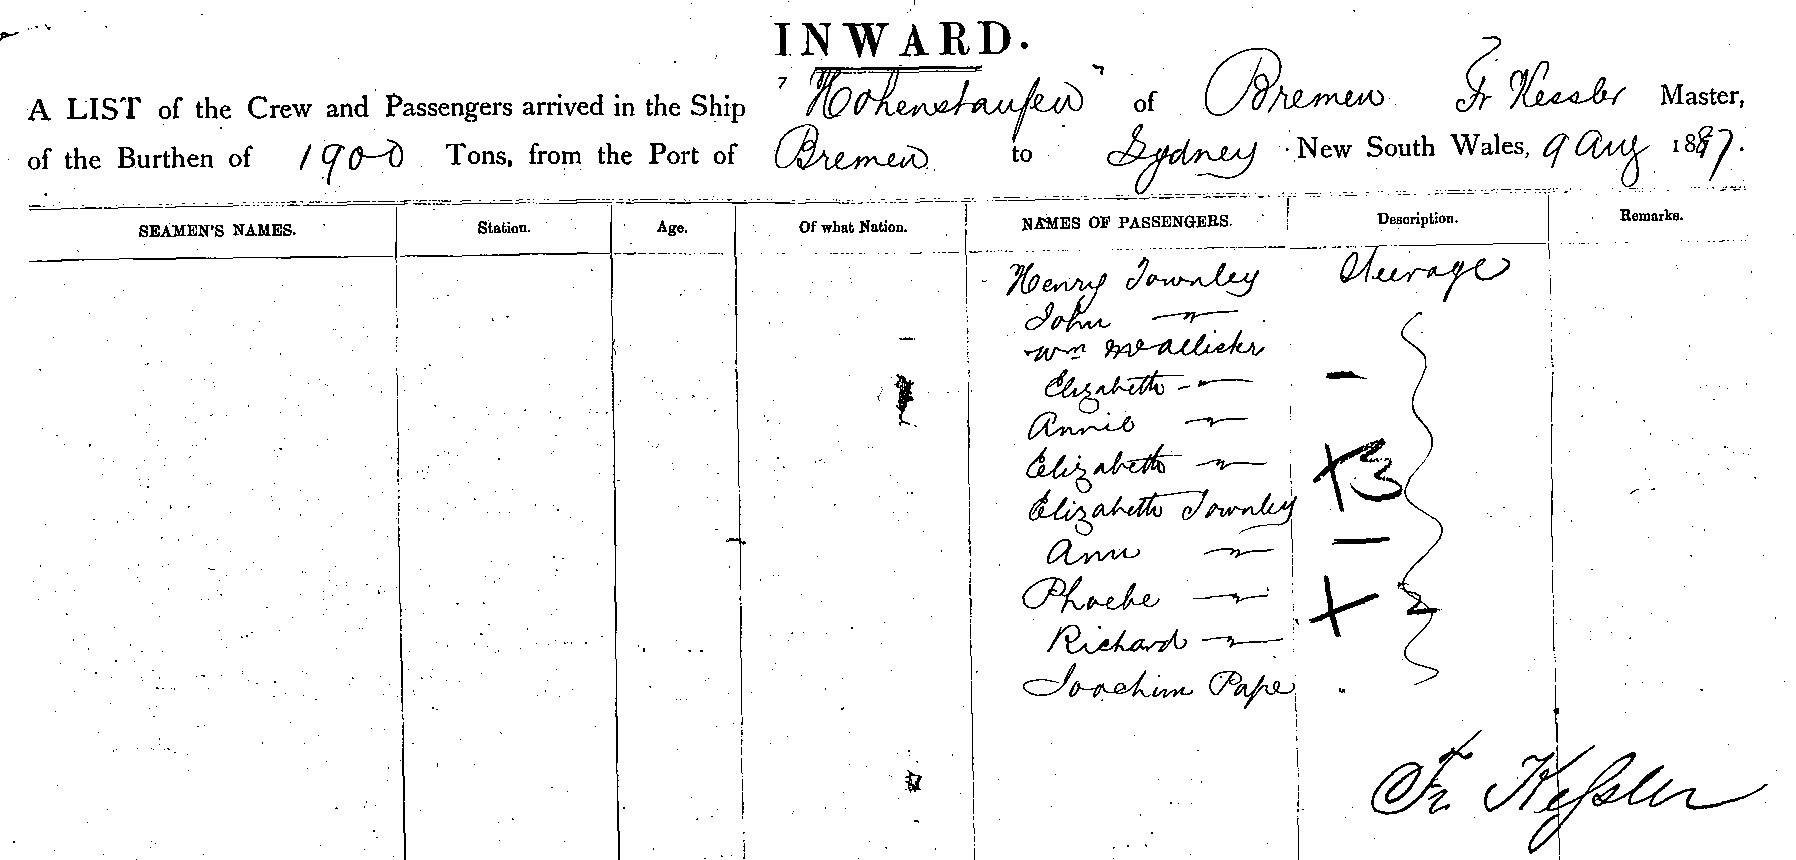 INWARD.
A LIST of the Crew and Passengers arrived in the Ship "Hohenstaufen" of Bremen Fr Kessler Master,
of the Burthen of 1900 Tons, from the Port of Bremen to Sydney New South Wales, 9 Aug 1887.
SEAMEN'S NAMES. Station. Age. Of what Nation. NAMES OF PASSENGERS. Description. Remarks.
Henry Townley Steerage
John — " —
Wm McAllister
Elizabeth — " — —
Annie — " —
Elizabeth — " — X 3
Elizabeth Townley
Ann — " — —
Phoebe — " — X 2
Richard — " —
Joachim Pape "
Fr Kessler